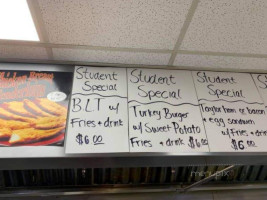 Student
Special
BLT w/
Fries + drink
$6.00
Student
Special
Turkey Burger
w/ Sweet Potato
Fries + drink $6
Student
Special
Taylor ham or bacon
+ egg sandwich
w/ fries + drink
$6.00